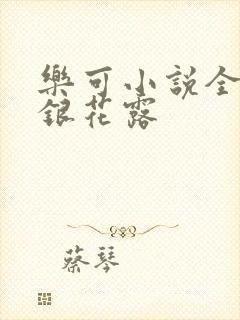 樂可小說全
銀花露
蔡琴